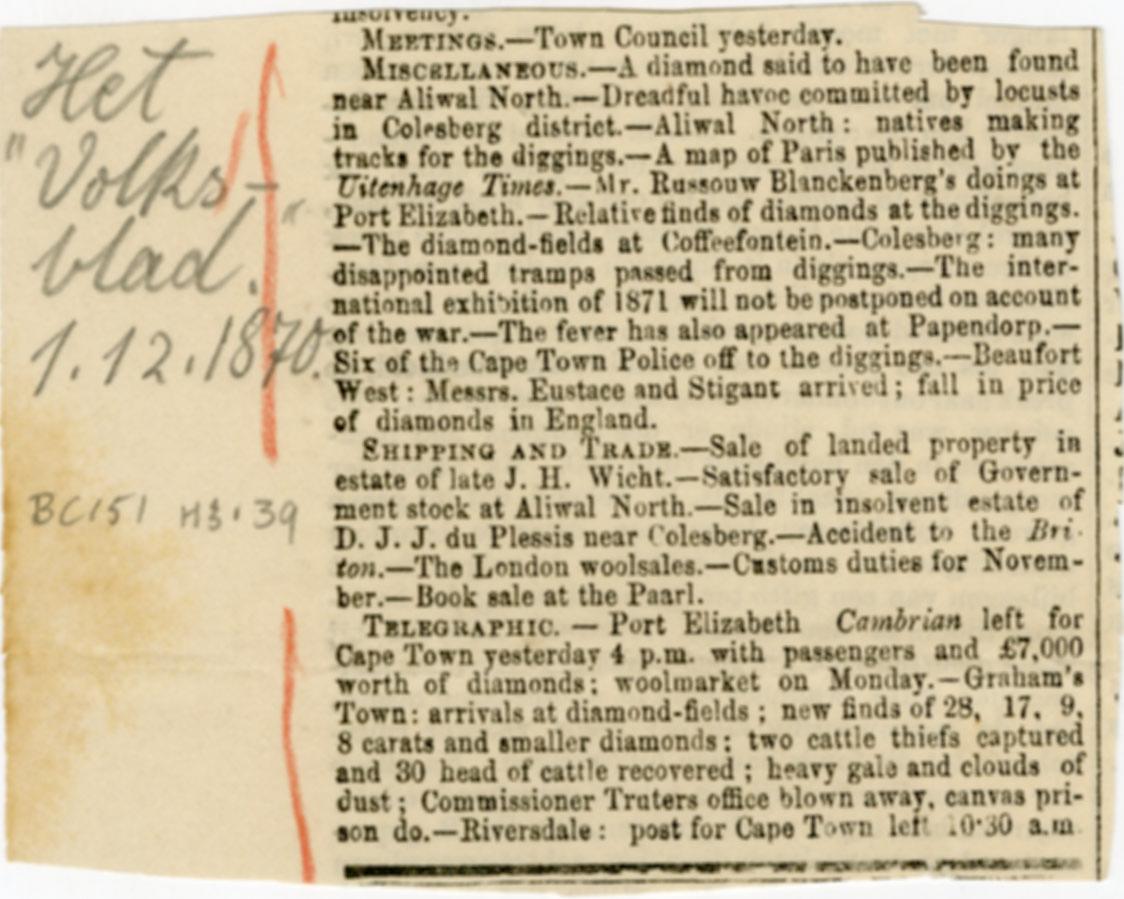 Het
"Volks-
blad."
1.12.1870.
BC151 H3.39
insolvency.
MEETINGS.—Town Council yesterday.
MISCELLANEOUS.—A diamond said to have been found
near Aliwal North.—Dreadful havoc committed by locusts
in Colesberg district.—Aliwal North: natives making
tracks for the diggings.—A map of Paris published by the
Uitenhage Times.—Mr. Russouw Blanckenberg's doings at
Port Elizabeth.—Relative finds of diamonds at the diggings.
—The diamond-fields at Coffeefontein.—Colesberg: many
disappointed tramps passed from diggings.—The inter-
national exhibition of 1871 will not be postponed on account
of the war.—The fever has also appeared at Papendorp.—
Six of the Cape Town Police off to the diggings.—Beaufort
West: Messrs. Eustace and Stigant arrived; fall in price
of diamonds in England.
SHIPPING AND TRADE.—Sale of landed property in
estate of late J. H. Wicht.—Satisfactory sale of Govern-
ment stock at Aliwal North.—Sale in insolvent estate of
D. J. J. du Plessis near Colesberg.—Accident to the Bri-
ton.—The London woolsales.—Customs duties for Novem-
ber.—Book sale at the Paarl.
TELEGRAPHIC. — Port Elizabeth Cambrian left for
Cape Town yesterday 4 p.m. with passengers and £7,000
worth of diamonds; woolmarket on Monday.—Graham's
Town: arrivals at diamond-fields; new finds of 28, 17, 9,
8 carats and smaller diamonds; two cattle thiefs captured
and 30 head of cattle recovered; heavy gale and clouds of
dust; Commissioner Truters office blown away, canvas pri-
son do.—Riversdale: post for Cape Town left 10·30 a.m